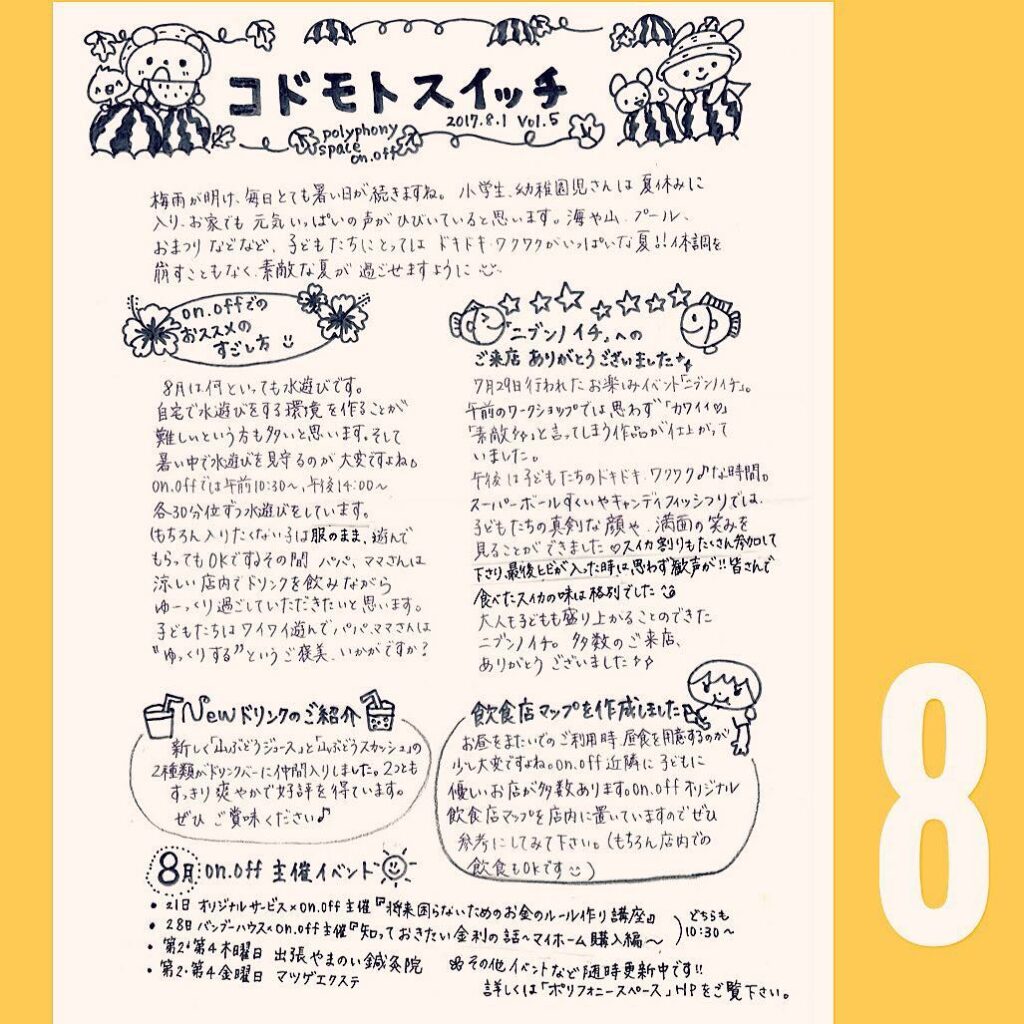 コドモトスイッチ
2017.8.1 Vol.5
polyphony
space
on.off
梅雨が明け、毎日とても暑い日が続きますね。小学生、幼稚園児さんは夏休みに
入り、お家でも元気いっぱいの声がひびいていると思います。海や山、プール、
おまつりなどなど、子どもたちにとってはドキドキ・ワクワクがいっぱいな夏!!体調を
崩すこともなく、素敵な夏が過ごせますように
on.offでの
おススメの
すごし方
8月は何といっても水遊びです。
自宅で水遊びをする環境を作ることが
難しいという方も多いと思います。そして
暑い中で水遊びを見守るのが大変ですよね。
on.offでは午前10:30〜、午後14:00〜
各30分位ずつ水遊びをしています。
(もちろん入りたくない子は服のまま、遊んで
もらってもOKです)その間 パパ、ママさんは
涼しい店内でドリンクを飲みながら
ゆーっくり過ごしていただきたいと思います。
子どもたちはワイワイ遊んでパパ、ママさんは
"ゆっくりする"というご褒美、いかがですか?
「ニブンノイチ」への
ご来店ありがとうございました
7月29日行われたお楽しみイベント「ニブンノイチ」。
午前のワークショップでは思わず「カワイイ♡」
「素敵」と言ってしまう作品が仕上がって
いました。
午後は子どもたちのドキドキ・ワクワク♪な時間。
スーパーボールすくいやキャンディフィッシュつりでは、
子どもたちの真剣な顔や、満面の笑みを
見ることができました♡スイカ割りもたくさん参加して
下さり、最後ヒビが入った時は思わず歓声が!!皆さんで
食べたスイカの味は格別でした
大人も子どもも盛り上がることのできた
ニブンノイチ。多数のご来店、
ありがとうございました
Newドリンクのご紹介
新しく「山ぶどうジュース」と「山ぶどうスカッシュ」の
2種類がドリンクバーに仲間入りしました。2つとも
すっきり爽やかで好評を得ています。
ぜひ ご賞味ください♪
飲食店マップを作成しました
お昼をまたいでのご利用時、昼食を用意するのが
少し大変ですよね。on.off近隣に子どもに
優しいお店が多数あります。on.offオリジナル
飲食店マップを店内に置いていますのでぜひ
参考にしてみて下さい。(もちろん店内での
飲食もOKです)
8月 on.off 主催イベント
• 21日 オリジナルサービス×on.off主催『将来困らないためのお金のルール作り講座』
• 28日 バンブーハウス×on.off主催『知っておきたい金利の話〜マイホーム購入編〜
どちらも
10:30〜
• 第2・第4木曜日 出張やまのい鍼灸院
• 第2・第4金曜日 マツゲエクステ
※その他イベントなど随時更新中です!!
詳しくは「ポリフォニースペース」HPをご覧下さい。
8